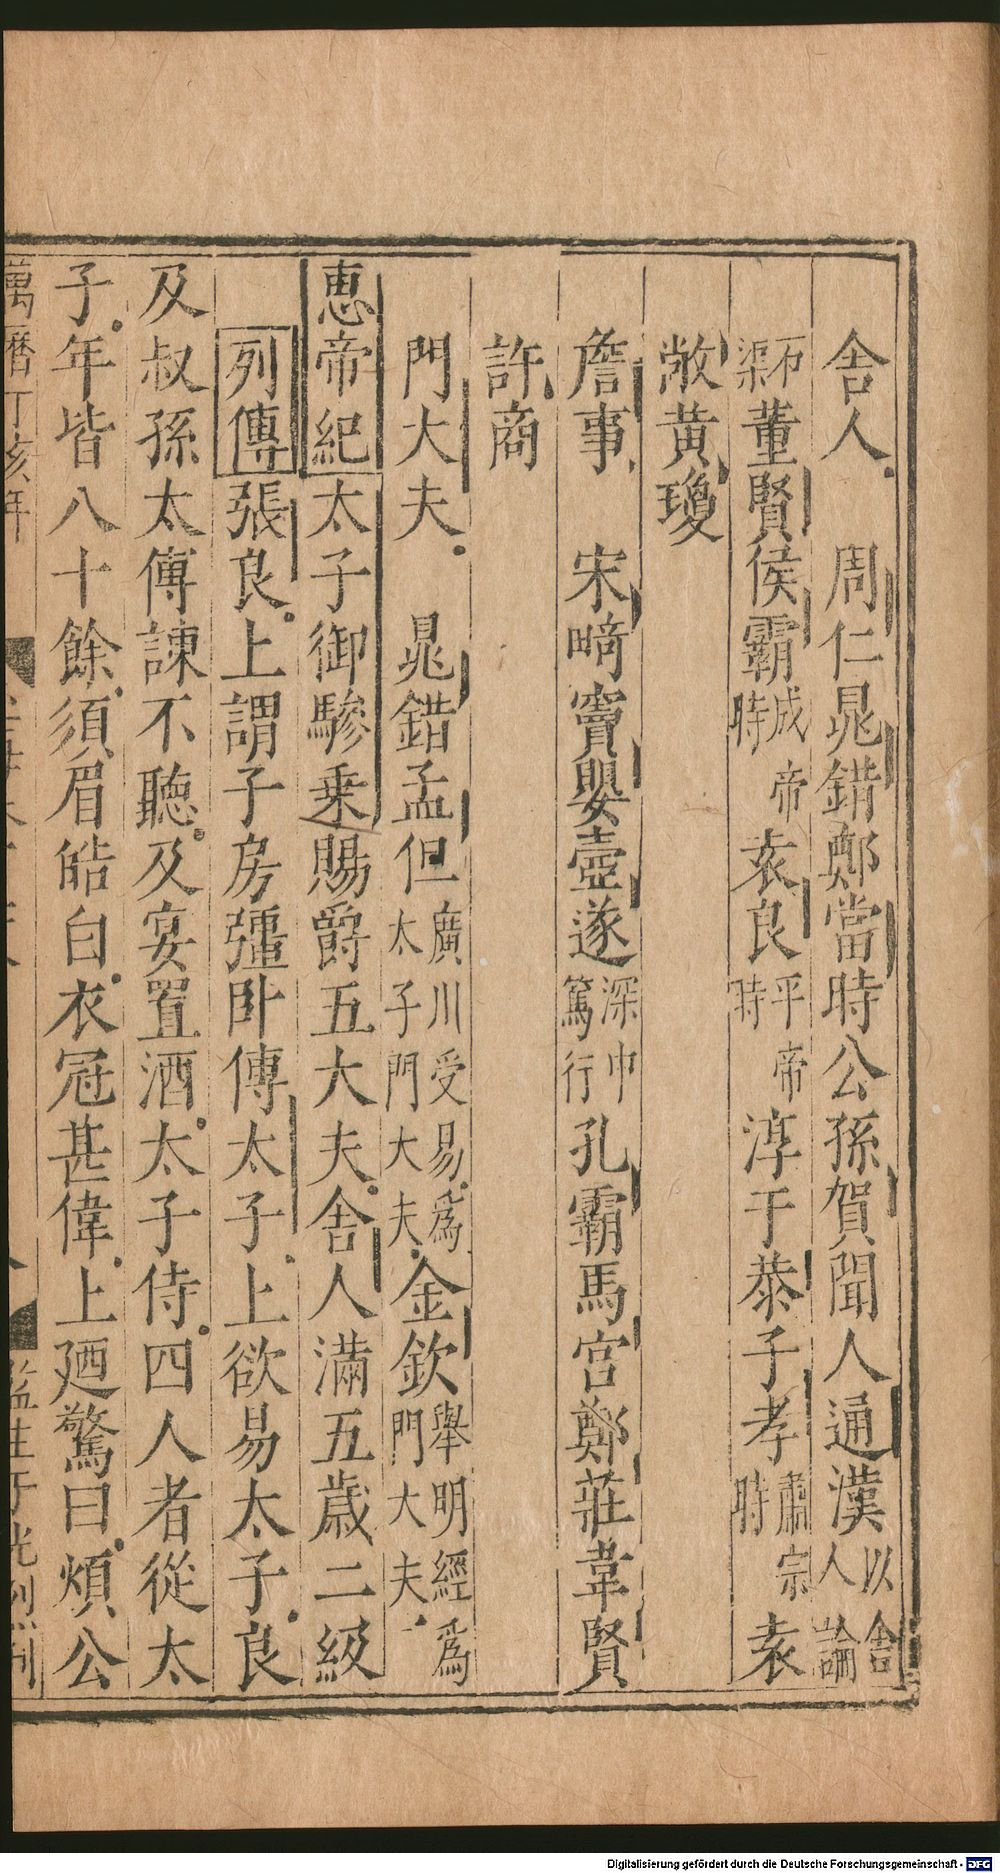 舍人 周仁晁錯鄭當時公孫賀聞人通漢以舍人論
石渠董賢侯霸成帝時袁良平帝時淳于恭子孝肅宗時袁
敞黃瓊
詹事 宋畸竇嬰壺遂深中篤行孔霸馬宮鄭莊韋賢
許商
門大夫 晁錯孟但廣川受易爲太子門大夫金欽舉明經爲門大夫
惠帝紀太子御驂乗賜爵五大夫舍人滿五歲二級
列傳張良上謂子房彊卧傅太子上欲易太子良
及叔孫太傅諫不聽及宴置酒太子侍四人者從太
子年皆八十餘須眉皓白衣冠甚偉上廼驚曰煩公
萬曆丁亥年
監生于光烈刊
Digitalisierung gefördert durch die Deutsche Forschungsgemeinschaft - DFG